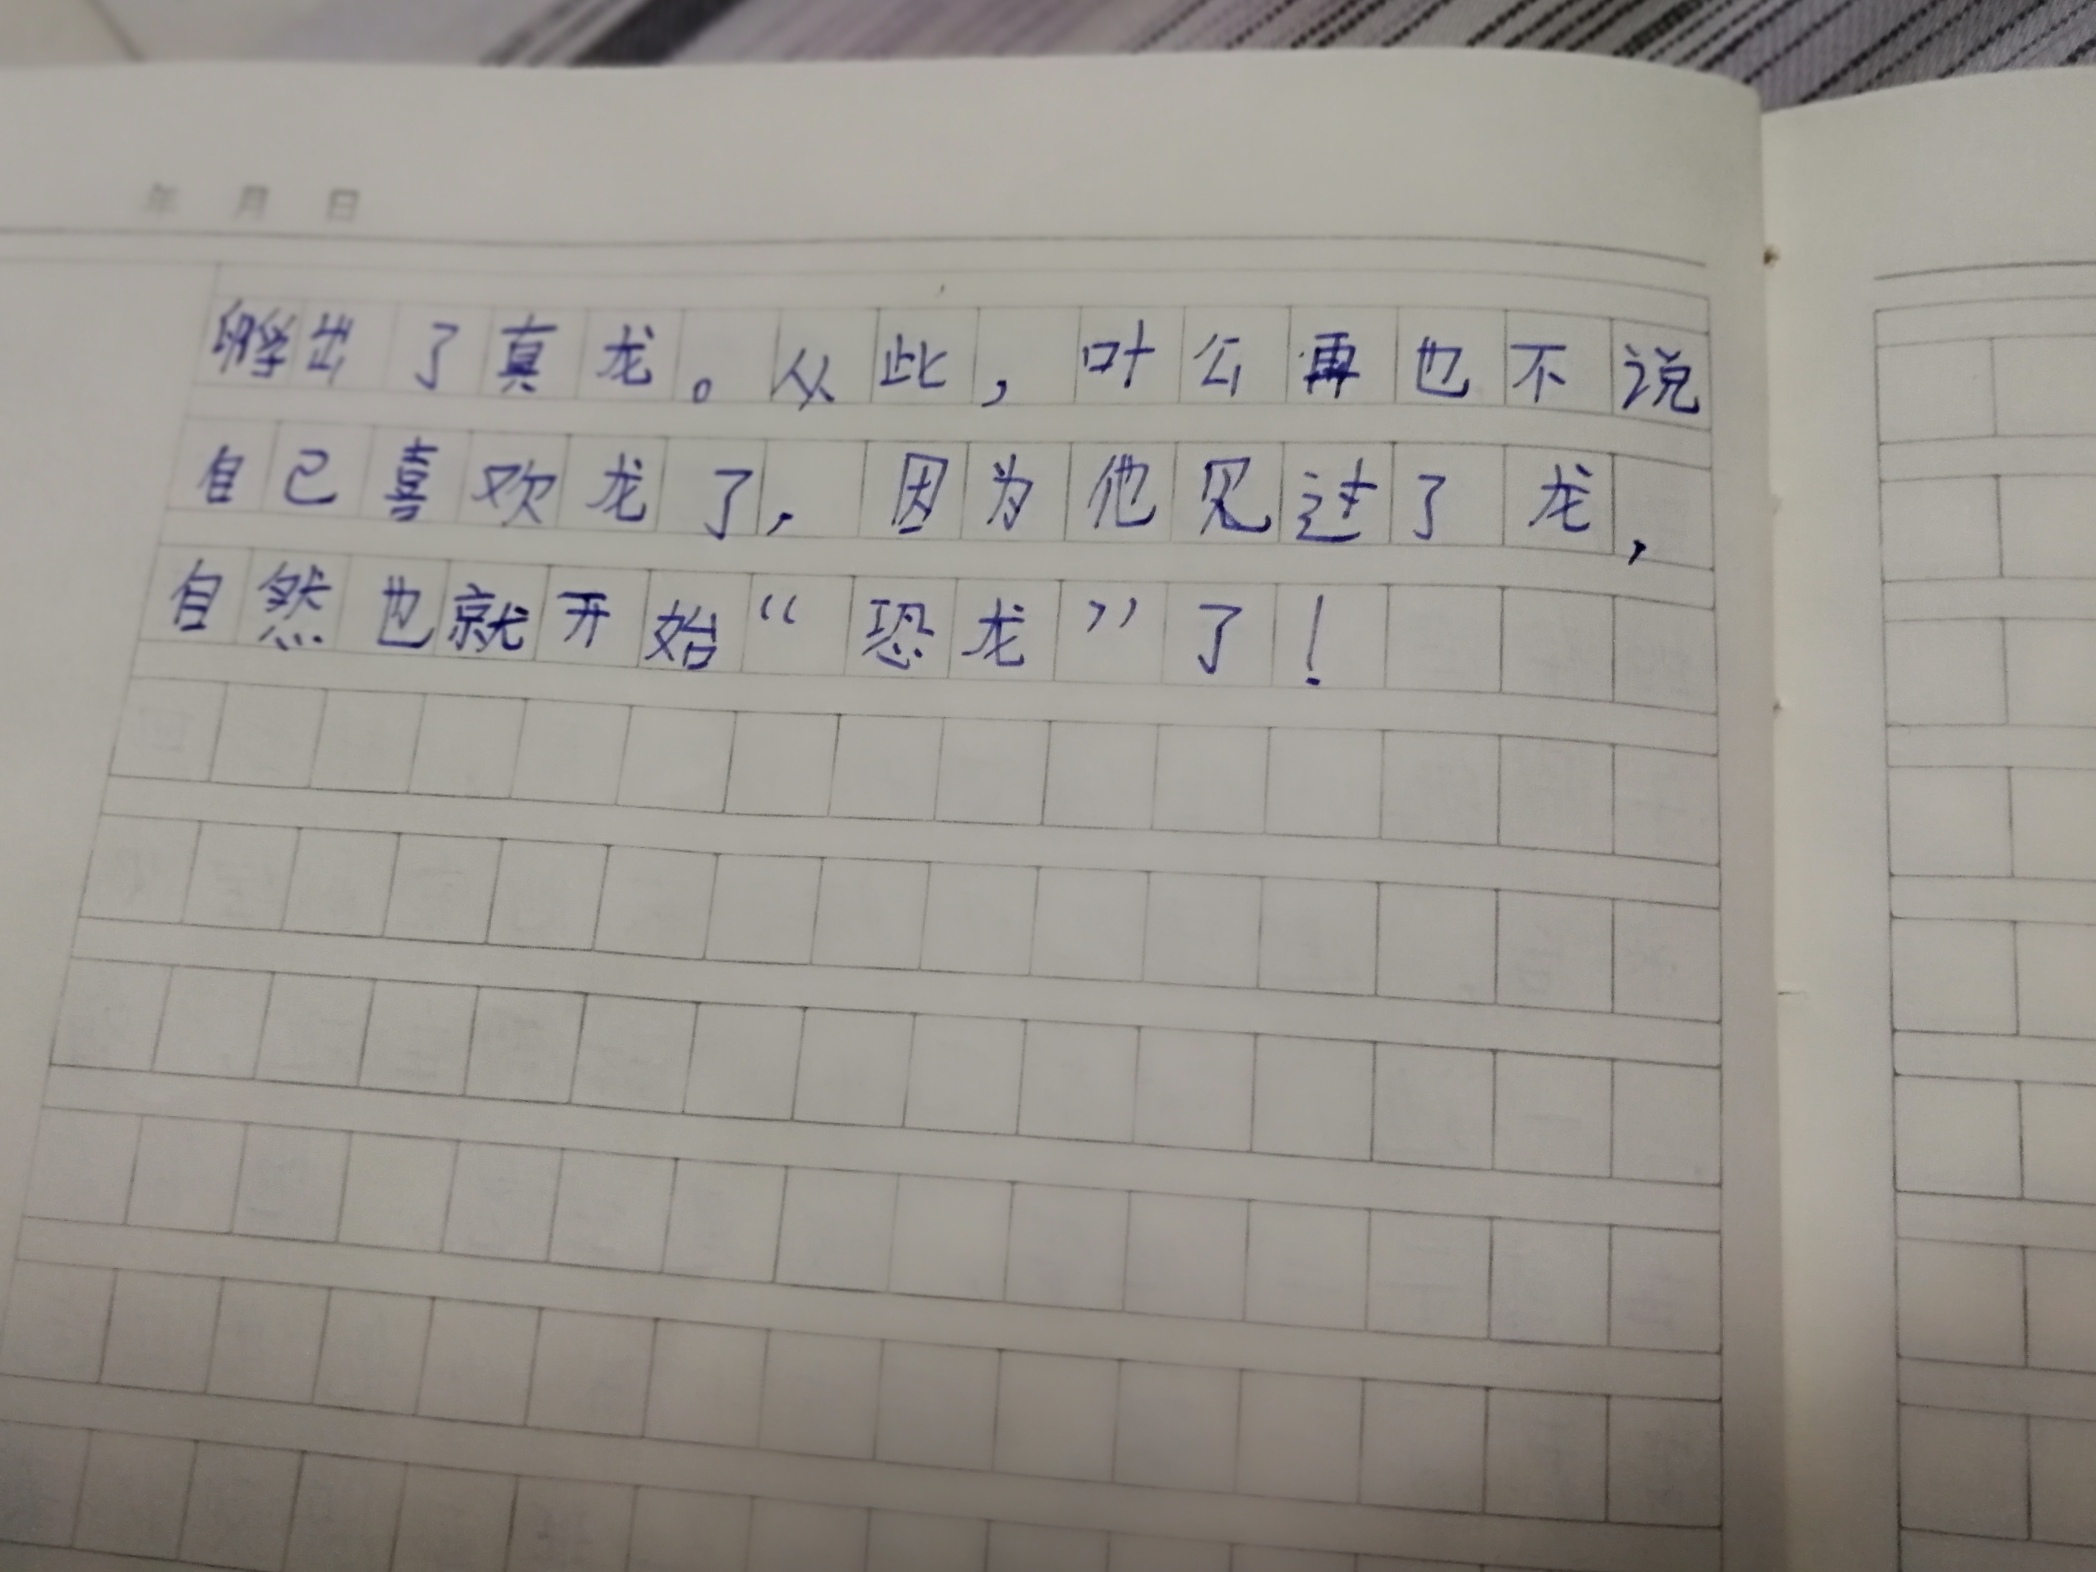 年 月 日
孵出了真龙。从此，叶公再也不说
自己喜欢龙了，因为他见过了龙，
自然也就开始“恐龙”了！